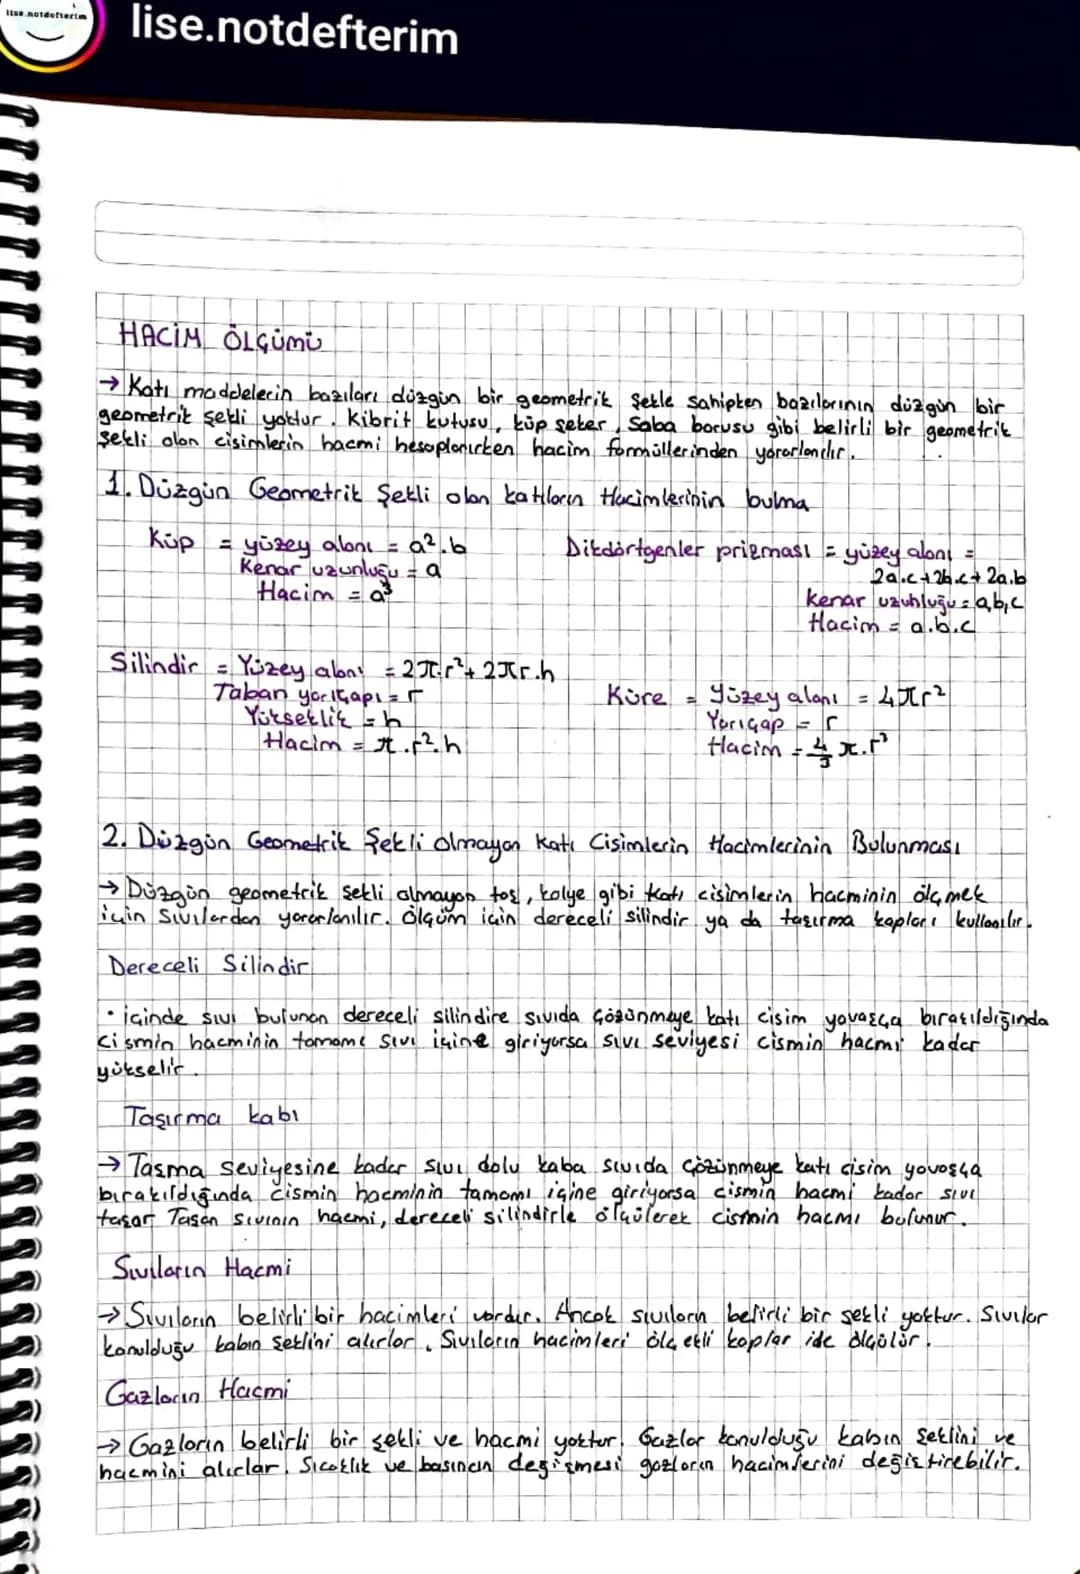 lise.notdefterim
lise.notdefterim
HACİM ÖLÇÜMÜ
→ Katı maddelerin bazıları düzgün bir geometrik şekle sahipken bazılarının düzgün bir
geometrik şekli yoktur. Kibrit kutusu, küp şeker, Soba borusu gibi belirli bir geometrik
şekli olan cisimlerin hacmi hesaplanırken hacim formüllerinden yararlanılır.
1. Düzgün Geometrik Şekli olan katıların Hacimlerinin bulma
Küp = yüzey alanı = a².b
Kenar uzunluğu = a
Hacim = a³
Dikdörtgenler prizması = yüzey alanı =
2a.c+2b.c+2a.b
Kenar uzunluğu = a,b,c
Hacim = a.b.c
Silindir = Yüzey alanı = 2π.r²+2πr.h
Taban yarıçapı = r
Yükseklik = h
Hacim = π.r².h
Küre = Yüzey alanı = 4πr²
Yarıçap = r
Hacim = 4/3 π.r³
2. Düzgün Geometrik Şekli Olmayan Katı Cisimlerin Hacimlerinin Bulunması
→ Düzgün geometrik şekli olmayan taş, kolye gibi katı cisimlerin hacminin ölçmek
için sıvılardan yararlanılır. Ölçüm için dereceli silindir ya da taşırma kapları kullanılır.
Dereceli Silindir
• içinde sıvı bulunan dereceli silindire sıvıda çözünmeye katı cisim yavaşça bırakıldığında
cismin hacminin tamamı sıvı içine giriyorsa sıvı seviyesi cismin hacmi kadar
yükselir.
Taşırma kabı
→ Taşma seviyesine kadar sıvı dolu kaba sıvıda çözünmeye katı cisim yavaşça
bırakıldığında cismin hacminin tamamı içine giriyorsa cismin hacmi kadar sıvı
taşar Taşan sıvının hacmi, dereceli silindirle ölçülerek cismin hacmı bulunur.
Sıvıların Hacmi
→ Sıvıların belirli bir hacimleri vardır. Ancak sıvıların belirli bir şekli yoktur. Sıvılar
konulduğu kabın şeklini alırlar. Sıvıların hacimleri ölçekli kaplar ile ölçülür.
Gazların Hacmi
→ Gazların belirli bir şekli ve hacmi yoktur. Gazlar konulduğu kabın şeklini ve
hacmini alırlar. Sıcaklık ve basıncın değişmesi gazların hacimlerini değiştirebilir.